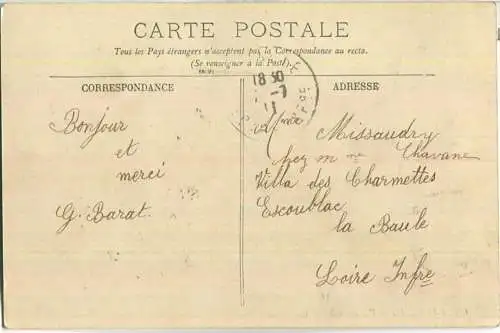 CARTE POSTALE
Tous les Pays étrangers n'acceptent pas la Correspondance au recto.
(Se renseigner à la Poste).
CORRESPONDANCE
ADRESSE
18 30
-7
11
Bonjour
et
merci
G. Barat.
Mme Missaudry
chez Mme Chavane
Villa des Charmettes
Escoublac
la Baule
Loire Infre